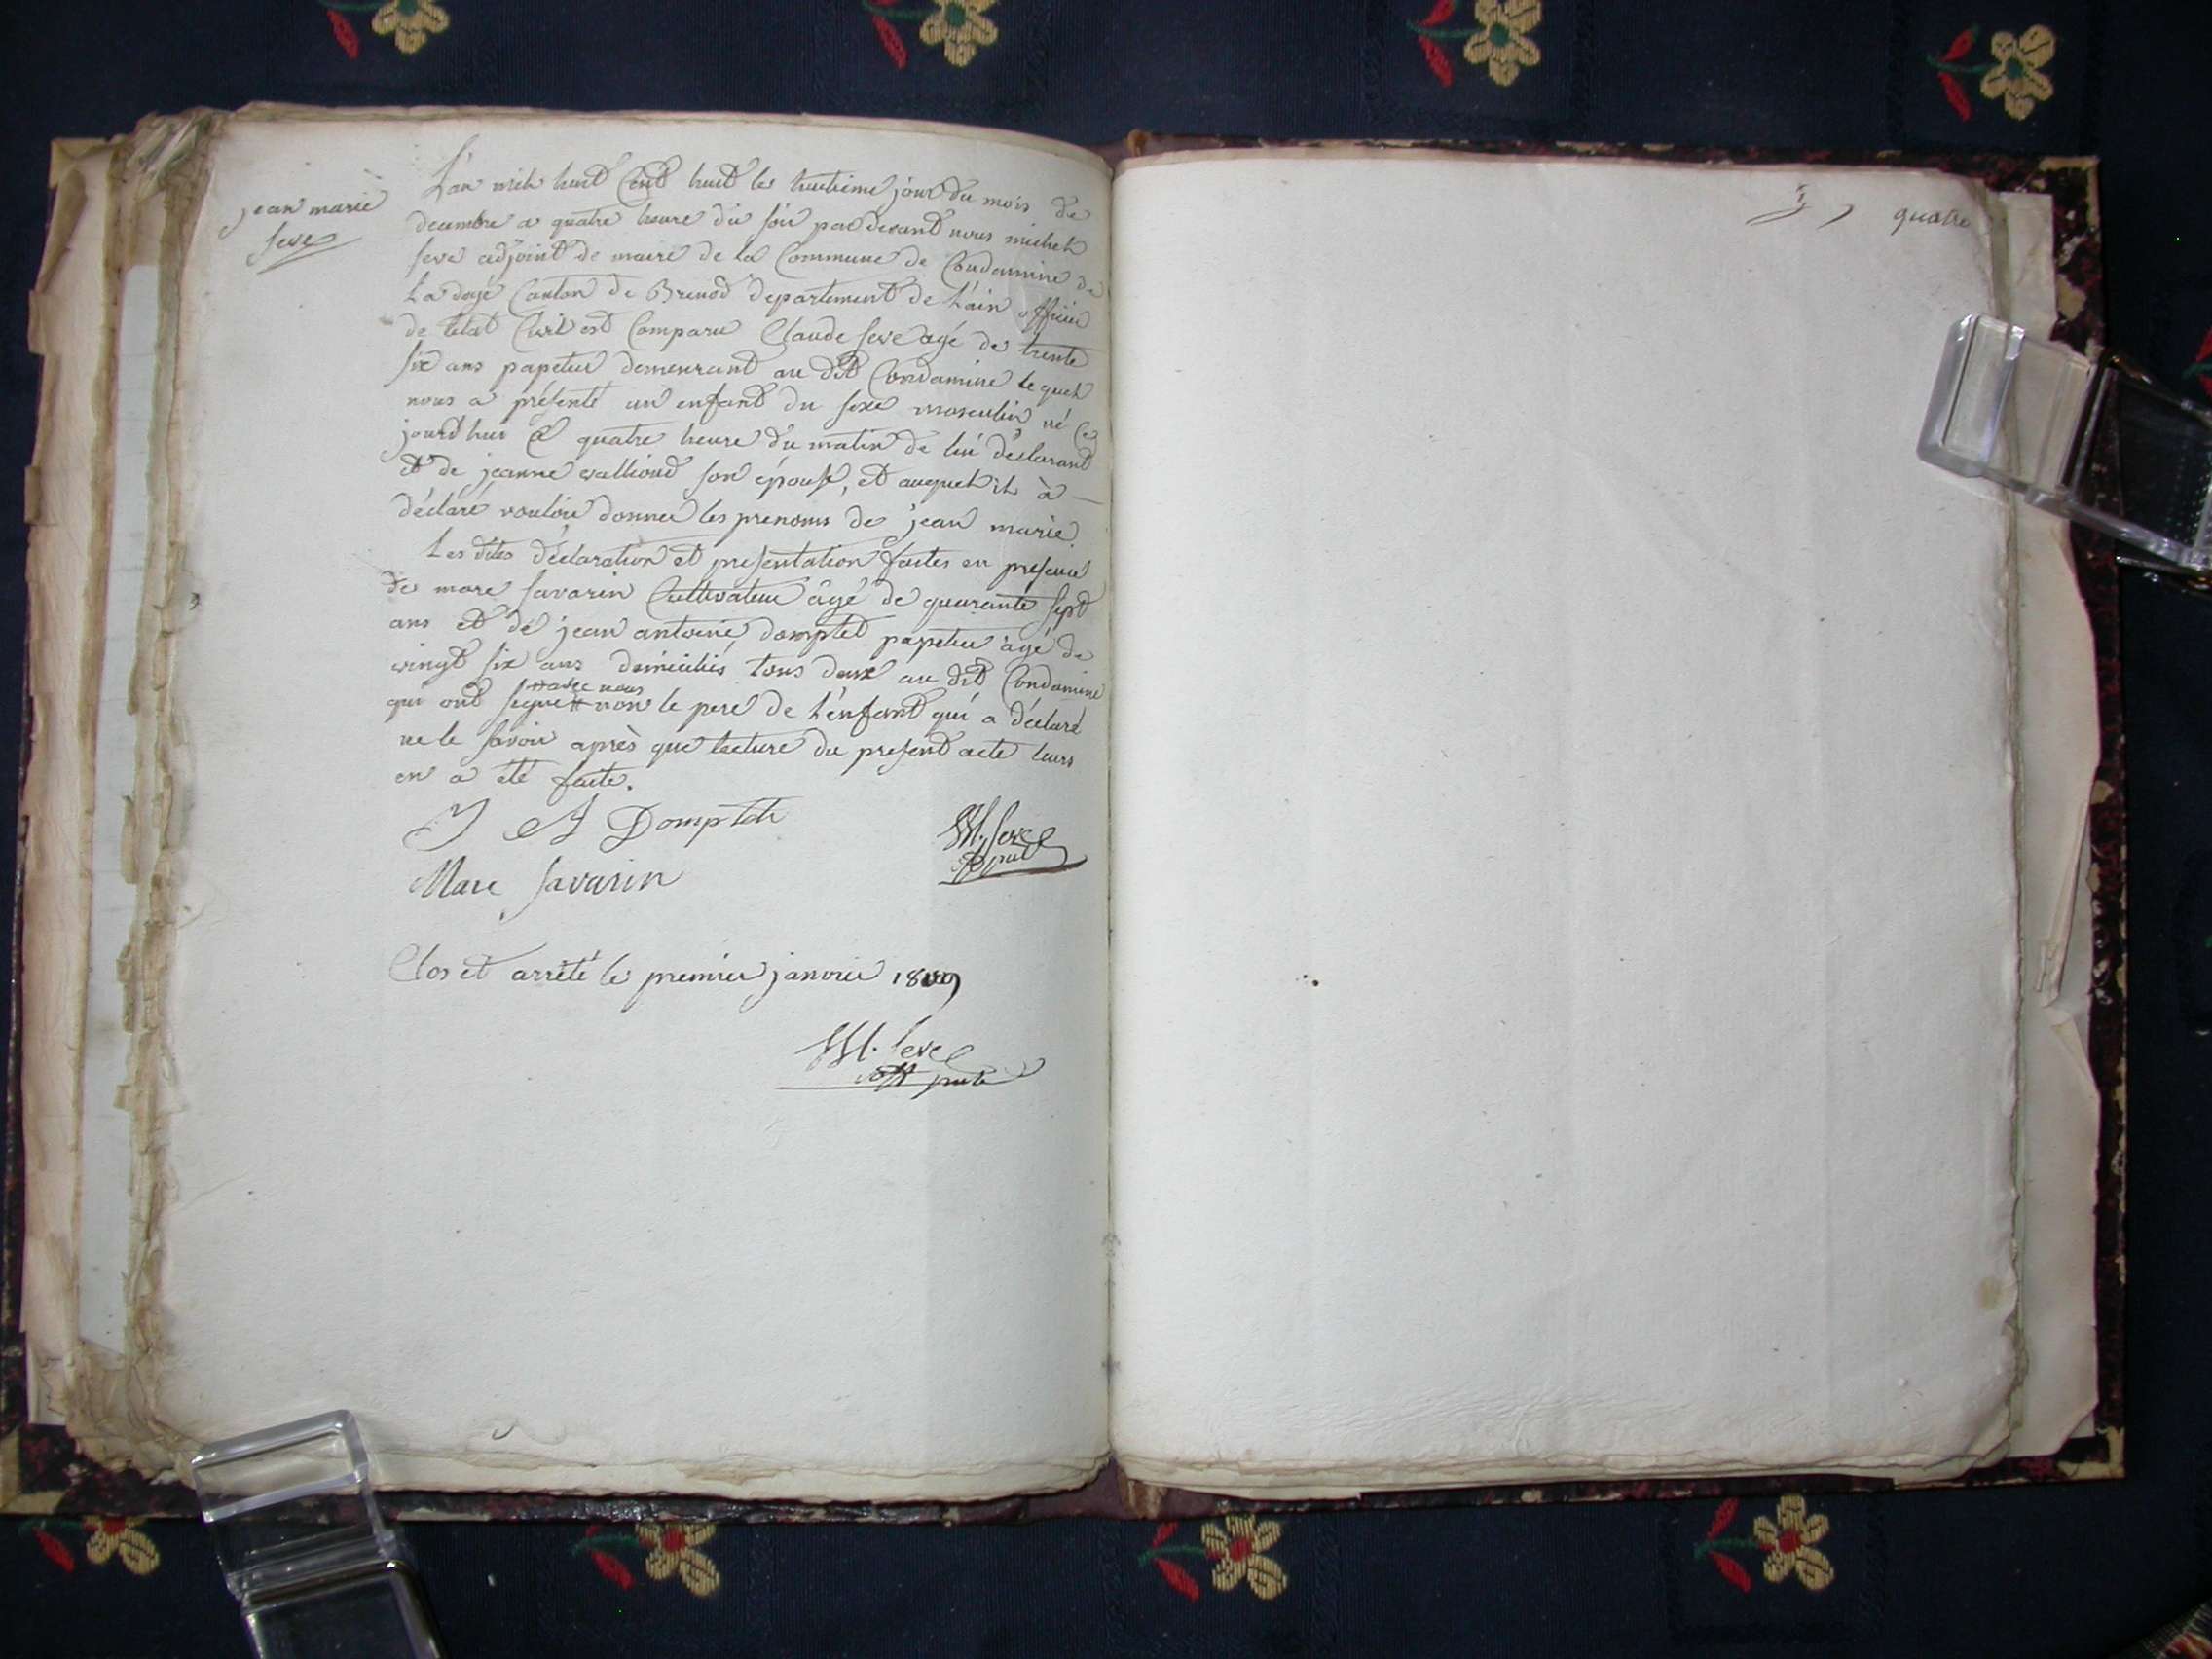 jean marie
seve
L'an mil huit Cent huit les huitieme jour du mois de
decembre a quatre heure du soir par devant nous michel
seve adjoint de maire de la Commune de Condamine de
La doye Canton de Brenod departement de L'ain officier
de letat Civil est Comparu Claude seve agé de trente
six ans papetier demeurant au dit Condamine le quel
nous a présenté un enfant du sexe masculin né ce
jourd'hui a quatre heure du matin de lui déclarant
et de jeanne vallioud son épouse, et auquel il à
déclaré vouloir donner les prenoms de jean marie.
Les dites déclaration et presentation faites en presence
de marc savarin Cultivateur âgé de quarante sept
ans et de jean antoine domptet papetier âgé de
vingt six ans domiciliés tous deux au dit Condamine
avec nous
qui ont signé non le pere de L'enfant qui a déclaré
ne le savoir après que lecture du present acte leurs
en a été faite.
J A Domptet
M. seve
Marc savarin
Clos et arrêté le premier janvier 1809
M. seve
quatre